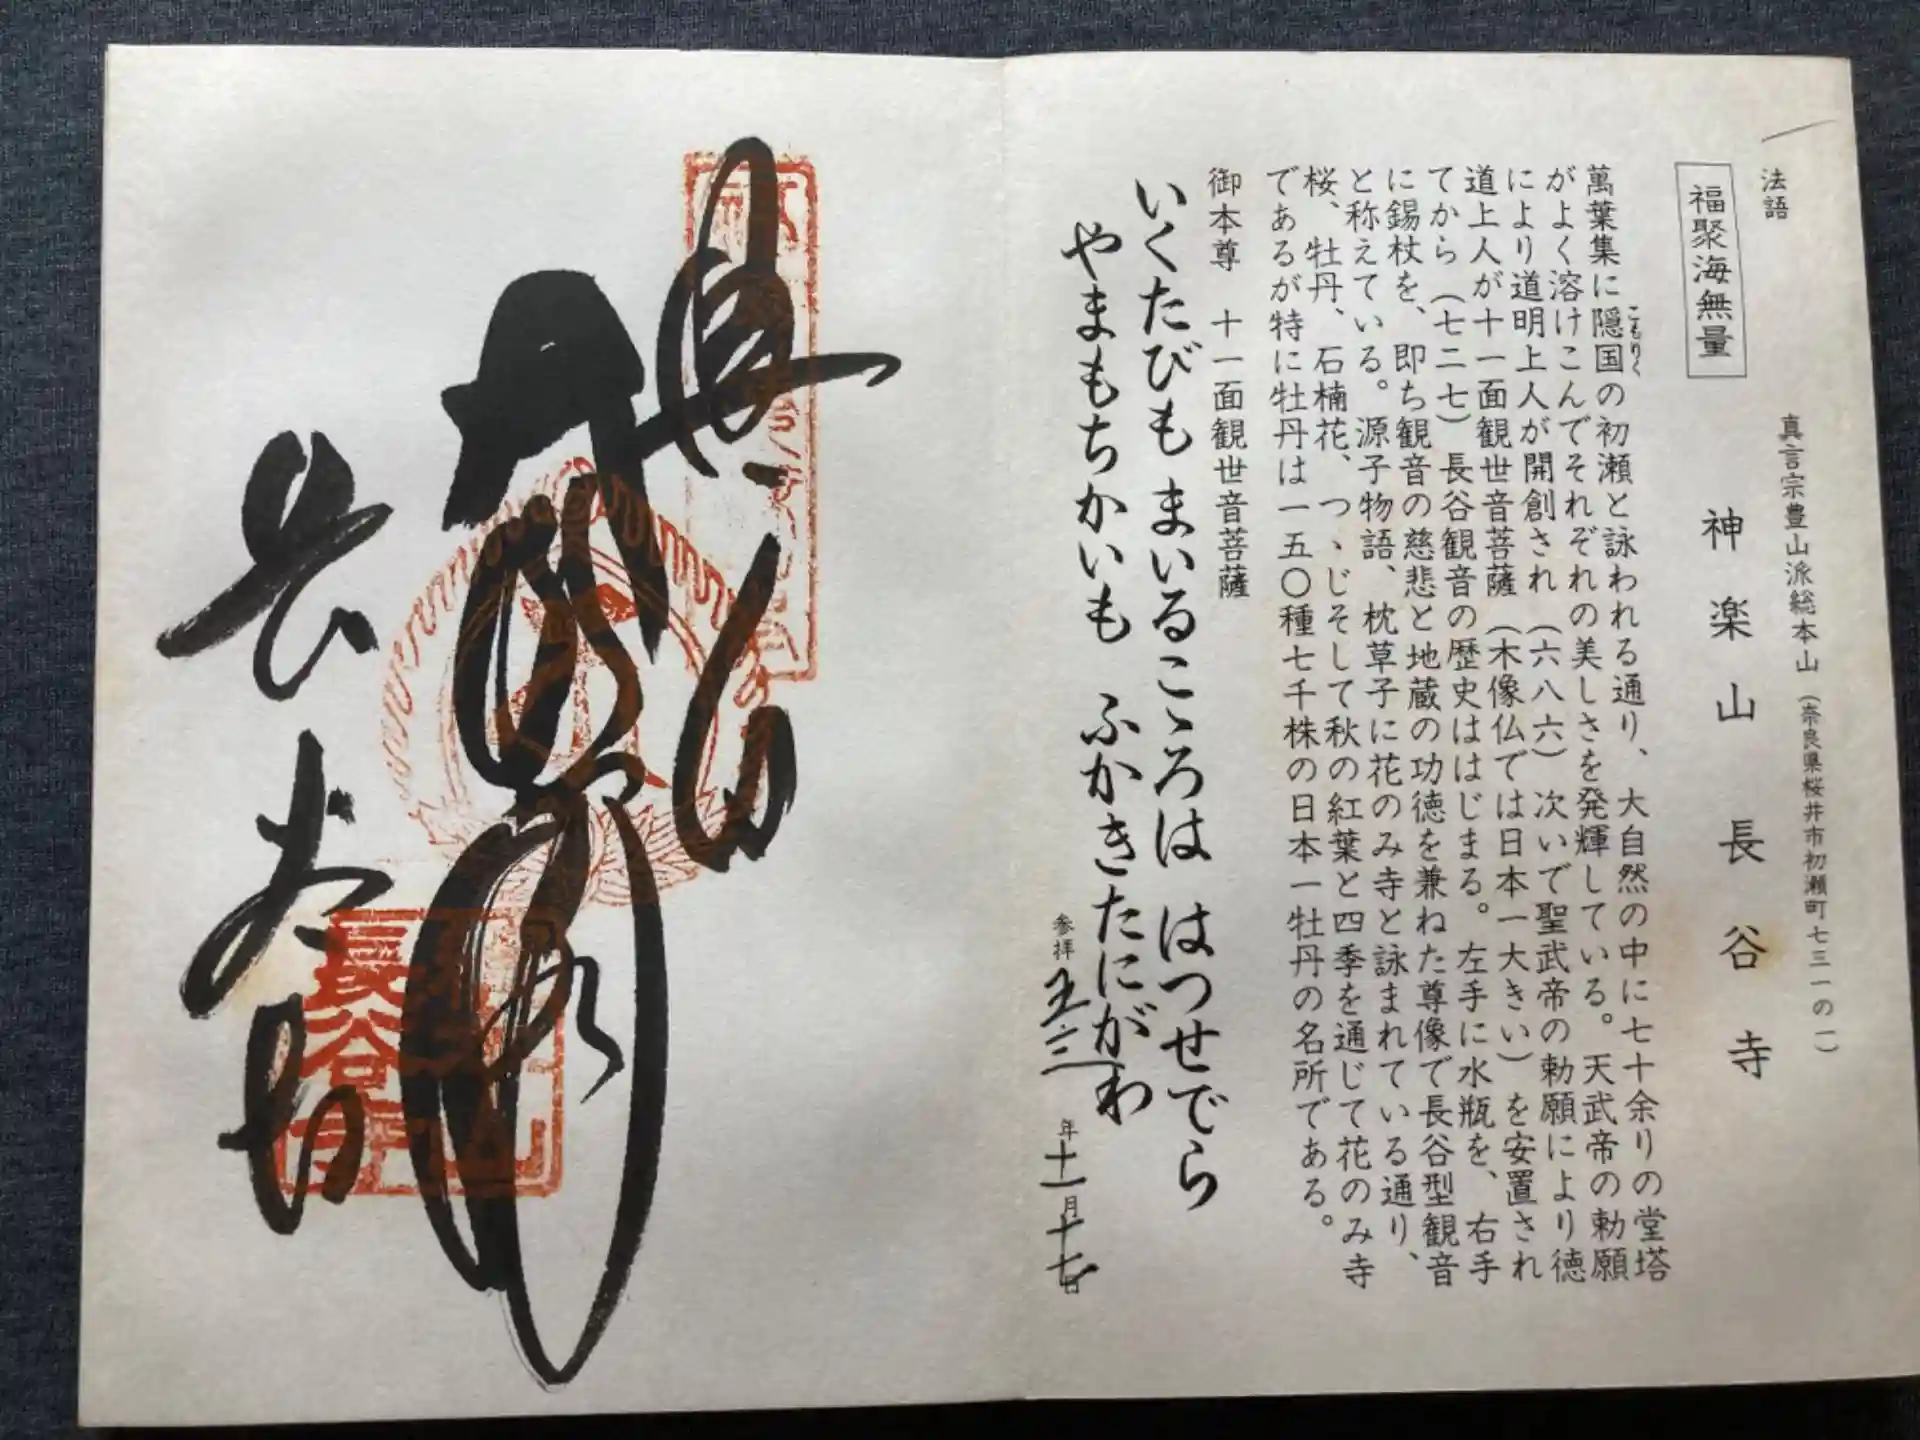 法語
福聚海無量
真言宗豊山派総本山(奈良県桜井市初瀬町七三一の一)
神楽山 長谷寺
萬葉集に隠国の初瀬と詠われる通り、大自然の中に七十余りの堂塔
こもりく
がよく溶けこんでそれぞれの美しさを発輝している。天武帝の勅願
により道明上人が開創され(六八六)次いで聖武帝の勅願により徳
道上人が十一面観世音菩薩(木像仏では日本一大きい)を安置され
てから(七二七)長谷観音の歴史ははじまる。左手に水瓶を、右手
に錫杖を、即ち観音の慈悲と地蔵の功徳を兼ねた尊像で長谷型観音
と称えている。源子物語、枕草子に花のみ寺と詠まれている通り、
桜、牡丹、石楠花、つゝじそして秋の紅葉と四季を通じて花のみ寺
であるが特に牡丹は一五〇種七千株の日本一牡丹の名所である。
御本尊 十一面観世音菩薩
いくたびも まいるこゝろは はつせでら
やまもちかいも ふかきたにがわ
参拝 五三 年十一月十七日
長谷寺